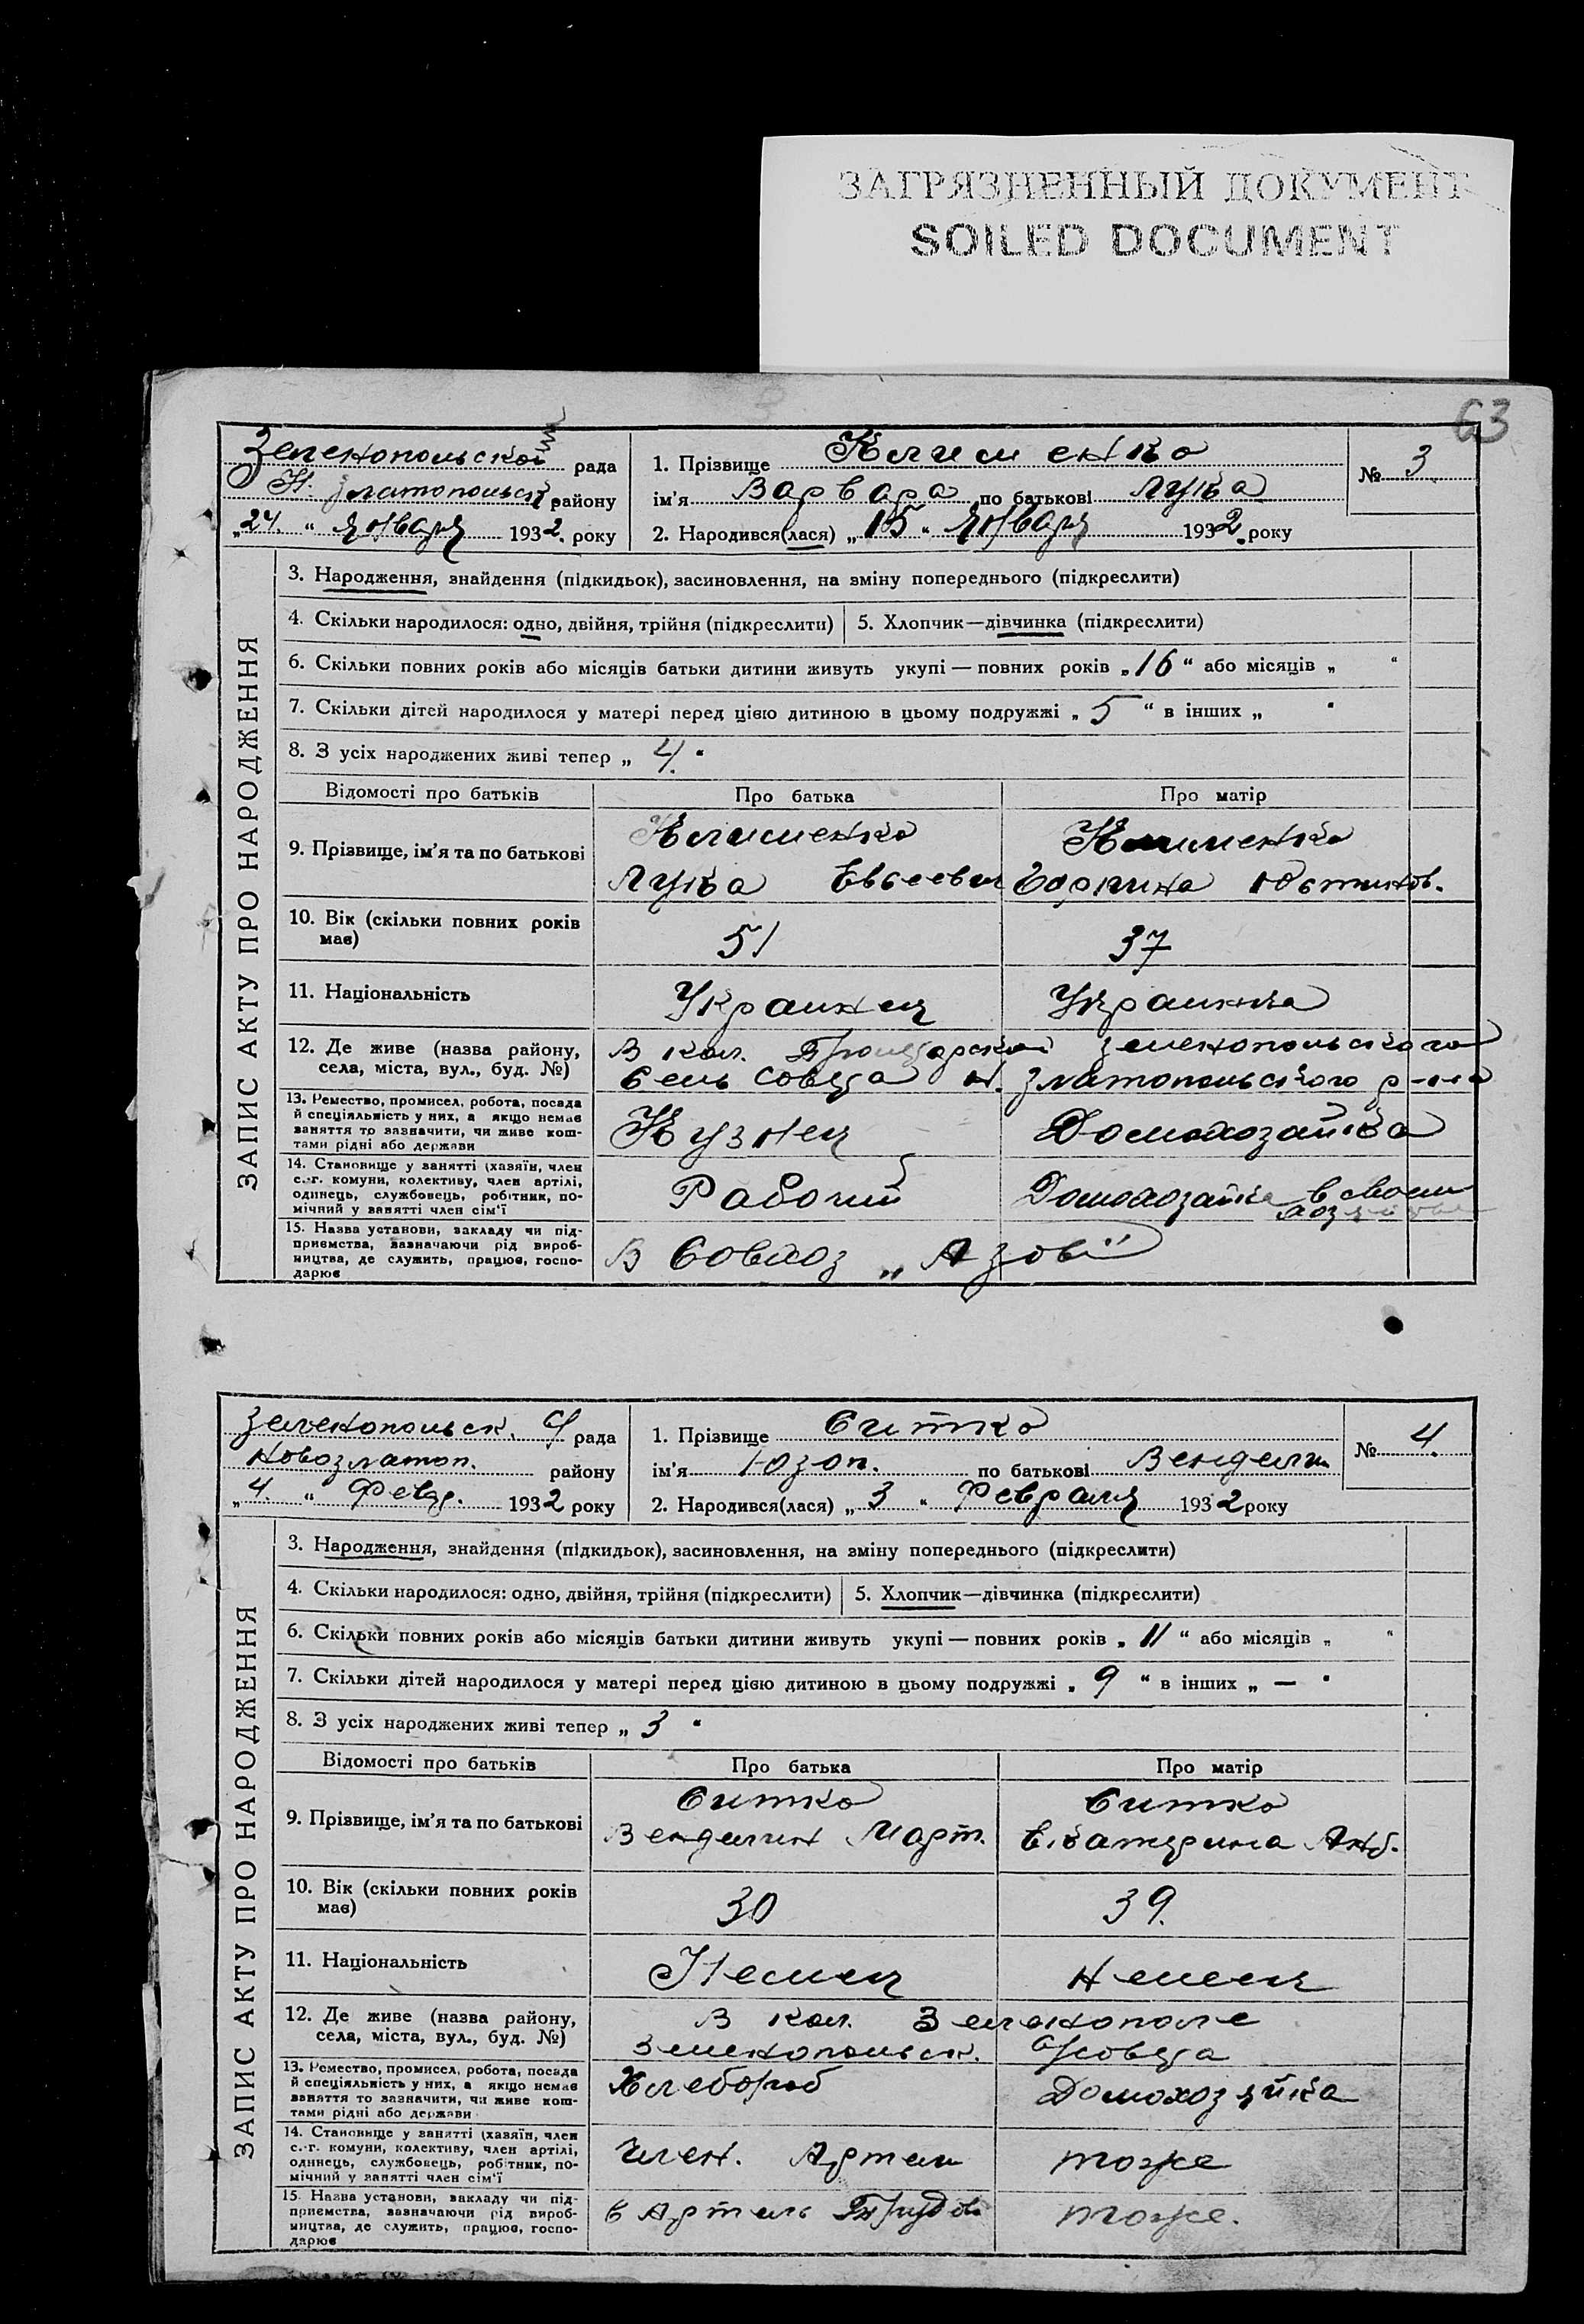 ЗАГРЯЗНЕННЫЙ ДОКУМЕНТ
SOILED DOCUMENT
63
Зеленопольской рада
Н. Златопольск району
„24. “ Января 1932. року
1. Прізвище Клименко
ім'я Варвара по батькові Лука
2. Народився(лася) „15 “ Января 1932. року
№ 3
ЗАПИС АКТУ ПРО НАРОДЖЕННЯ
3. Народження, знайдення (підкидьок), засиновлення, на зміну попереднього (підкреслити)
4. Скільки народилося: одно, двійня, трійня (підкреслити) 5. Хлопчик—дівчинка (підкреслити)
6. Скільки повних років або місяців батьки дитини живуть укупі — повних років „16“ або місяців „ “
7. Скільки дітей народилося у матері перед цією дитиною в цьому подружжі „ 5 “ в інших „ “
8. З усіх народжених живі тепер „ 4. “
Відомості про батьків Про батька Про матір
9. Прізвище, ім'я та по батькові
Клименко Клименко
Лука Евсеевич Юстинов.
10. Вік (скільки повних років має) 51 37
11. Національність Украинец Украинка
12. Де живе (назва району, села, міста, вул., буд. №)
В кол. Зеленопольского
Сель Совета Н. Златопольского р-на
13. Ремество, промисел, робота, посада й спеціяльність у них, а якщо немає заняття то зазначити, чи живе коштами рідні або держави
Кузнец Домохозайка
14. Становище у занятті (хазяїн, член с.-г. комуни, колективу, член артілі, одинець, службовець, робітник, помічний у занятті член сім'ї
Рабочий Домохозайка в своем
15. Назва установи, закладу чи підприємства, зазначаючи рід виробництва, де служить, працює, господарює
В Совхоз „Азов"
Зеленопольск. С/ рада
Новозлатоп. району
„4. “ Февр. 1932 року
1. Прізвище Ситко
ім'я Юзоп. по батькові Венделин
2. Народився(лася) „ 3 “ Февраля 1932 року
№ 4.
ЗАПИС АКТУ ПРО НАРОДЖЕННЯ
3. Народження, знайдення (підкидьок), засиновлення, на зміну попереднього (підкреслити)
4. Скільки народилося: одно, двійня, трійня (підкреслити) 5. Хлопчик—дівчинка (підкреслити)
6. Скільки повних років або місяців батьки дитини живуть укупі — повних років „ 11 “ або місяців „ “
7. Скільки дітей народилося у матері перед цією дитиною в цьому подружжі „ 9 “ в інших „ — “
8. З усіх народжених живі тепер „ 3 “
Відомості про батьків Про батька Про матір
9. Прізвище, ім'я та по батькові
Ситко Ситко
Венделин Март. Екатерина
10. Вік (скільки повних років має) 30 39.
11. Національність Немец Немец
12. Де живе (назва району, села, міста, вул., буд. №)
В кол. Зеленополе
Зеленопольск. С/совета
13. Ремество, промисел, робота, посада й спеціяльність у них, а якщо немає заняття то зазначити, чи живе коштами рідні або держави
Хлебороб Домохозяйка
14. Становище у занятті (хазяїн, член с.-г. комуни, колективу, член артілі, одинець, службовець, робітник, помічний у занятті член сім'ї
Член. Артели тоже
15. Назва установи, закладу чи підприємства, зазначаючи рід виробництва, де служить, працює, господарює
в Артель тоже.